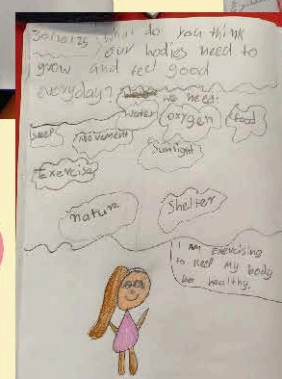 30/10/25 What do you think
our bodies need to
grow and feel good
everyday? We need:
water oxygen food
sleep Movement
Sunlight
Exercise
nature Shelter
I am exercising
to keep my body
be healthy.